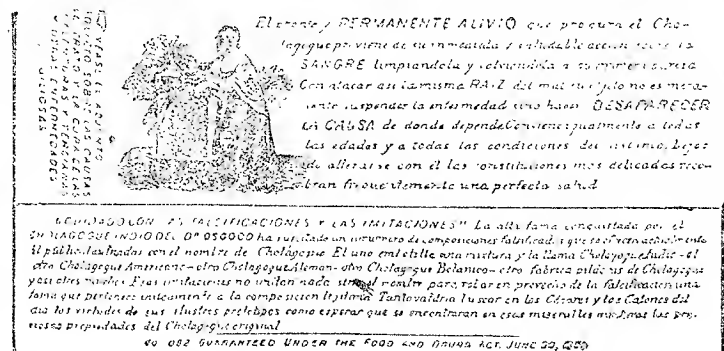 VEASE EL ADJUNTO
FOLLETO SOBRE LAS CAUSAS
EL TRATO Y LA CURA DE LAS
CALENTURAS Y TERCIANAS
Y OTRAS ENFERMEDADES
BILIOSAS
El pronto y PERMANENTE ALIVIO que procura el Cho-
lagogue proviene de su inmediata y saludable accion sobre la
SANGRE limpiandola y volviendola a su primera pureza
Con atacar asi la misma RAIZ del mal su no es mera-
mente suspender la enfermedad sino hacer DESAPARECER
LA CAUSA de donde depende Conviene igualmente a todas
las edades y a todas las condiciones del Lejos
de alterarse con él las constituciones mas delicadas reco-
bran frequentemente una perfecta salud
"CUIDADO CON LAS FALSIFICACIONES Y LAS IMITACIONES" La alta fama conquistada por el
CHOLAGOGUE INDIO DEL Dr OSGOOD ha suscitado un de composiciones falsificadas que se
al publico ilustradas con el nombre de Cholagogue El uno embotella una mixtura y la llama Cholagogue Indio - el
otro Cholagogue Americano - otro Cholagogue Aleman - otro Cholagogue Botanico - otro fabrica pildoras de Cholagogue
y asi otros muchos Esas imitaciones no imitan nada sino el nombre para robar en provecho de la falsificacion una
fama que pertenece unicamente a la composicion legitima Tanto valdria buscar en los Césares y los Catones del
dia las virtudes de sus ilustres prototipos como esperar que se encontraran en esas miserables medicinas las pre-
ciosas propiedades del Cholagogue original
No 082 GUARANTEED UNDER THE FOOD AND DRUGS ACT. JUNE 30, 1906